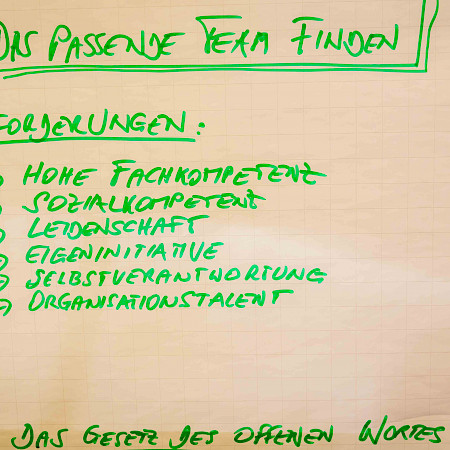 DAS PASSENDE TEAM FINDEN
FORDERUNGEN:
HOHE FACHKOMPETENZ
SOZIALKOMPETENZ
LEIDENSCHAFT
EIGENINITIATIVE
SELBSTVERANTWORTUNG
ORGANISATIONSTALENT
DAS GESETZ DES OFFENEN WORTES